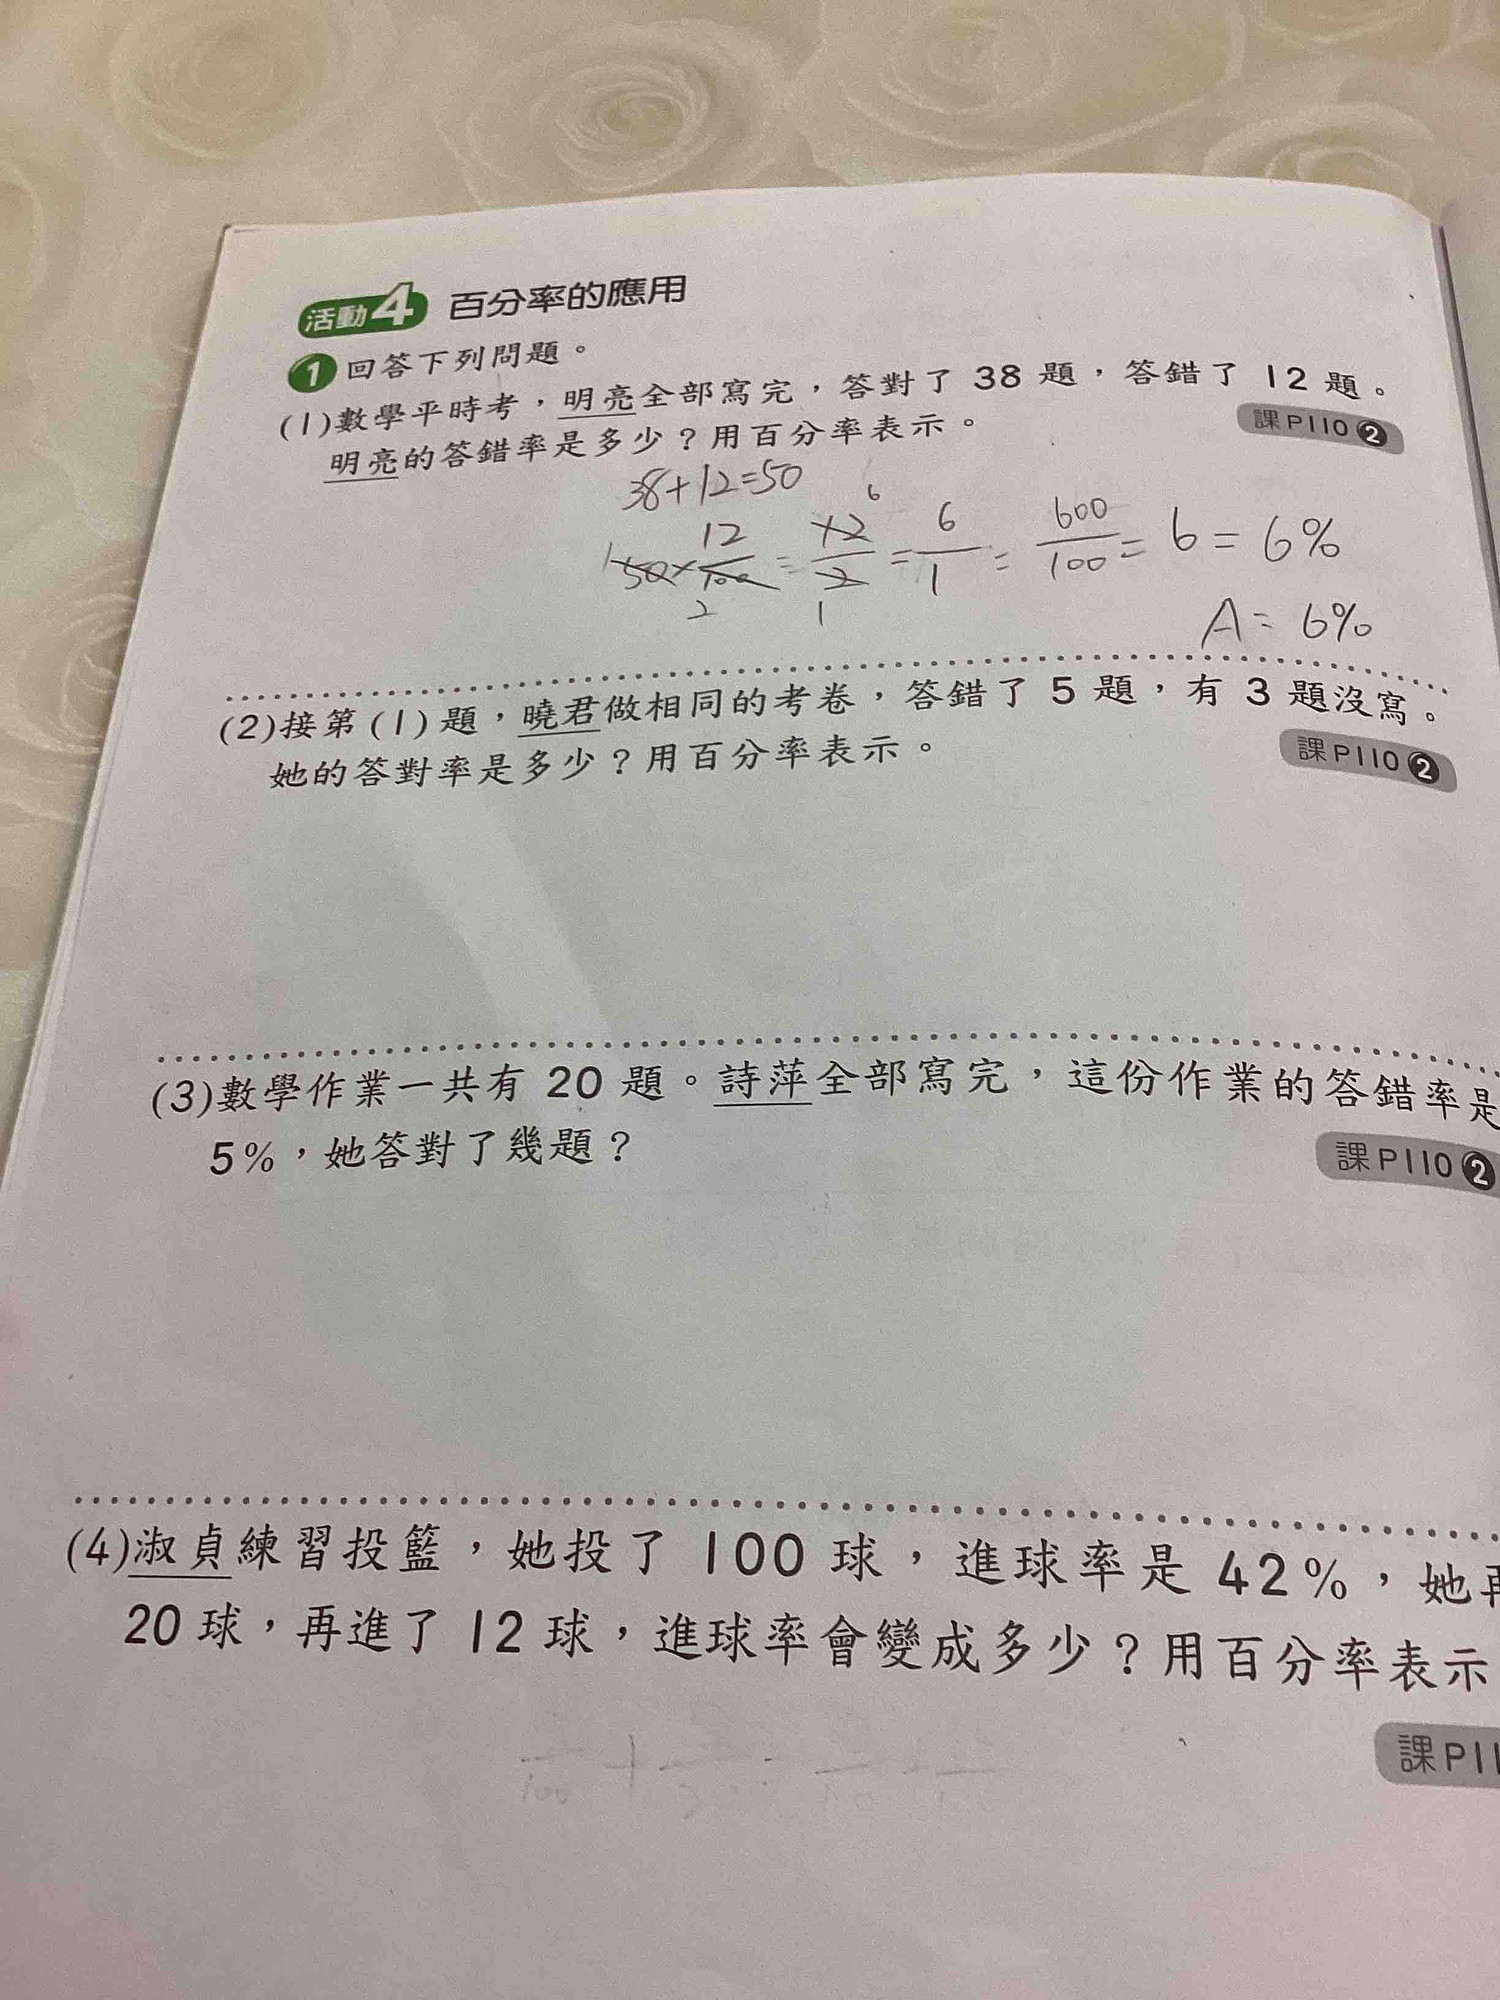 活動4 百分率的應用
1 回答下列問題。
(1)數學平時考，明亮全部寫完，答對了 38 題，答錯了 12 題。
明亮的答錯率是多少？用百分率表示。
課P110 2
38+12=50
50×12/100=12/2=6/1=600/100=6=6%
A=6%
(2)接第(1)題，曉君做相同的考卷，答錯了 5 題，有 3 題沒寫。
她的答對率是多少？用百分率表示。
課P110 2
(3)數學作業一共有 20 題。詩萍全部寫完，這份作業的答錯率是
5%，她答對了幾題？
課P110 2
(4)淑貞練習投籃，她投了 100 球，進球率是 42%，她再
20 球，再進了 12 球，進球率會變成多少？用百分率表示
課P11